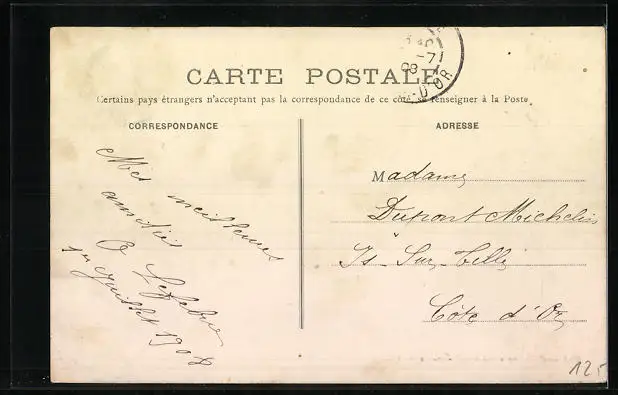 CARTE POSTALE
Certains pays étrangers n'acceptant pas la correspondance de ce côté, se renseigner à la Poste
CORRESPONDANCE
Mes meilleures
amitiés
Lefebvre
1er Juillet 1908
ADRESSE
Madame
Dupont Michelin
Is-Sur-Tille
Côte d'Or
-7
08
D'OR
125